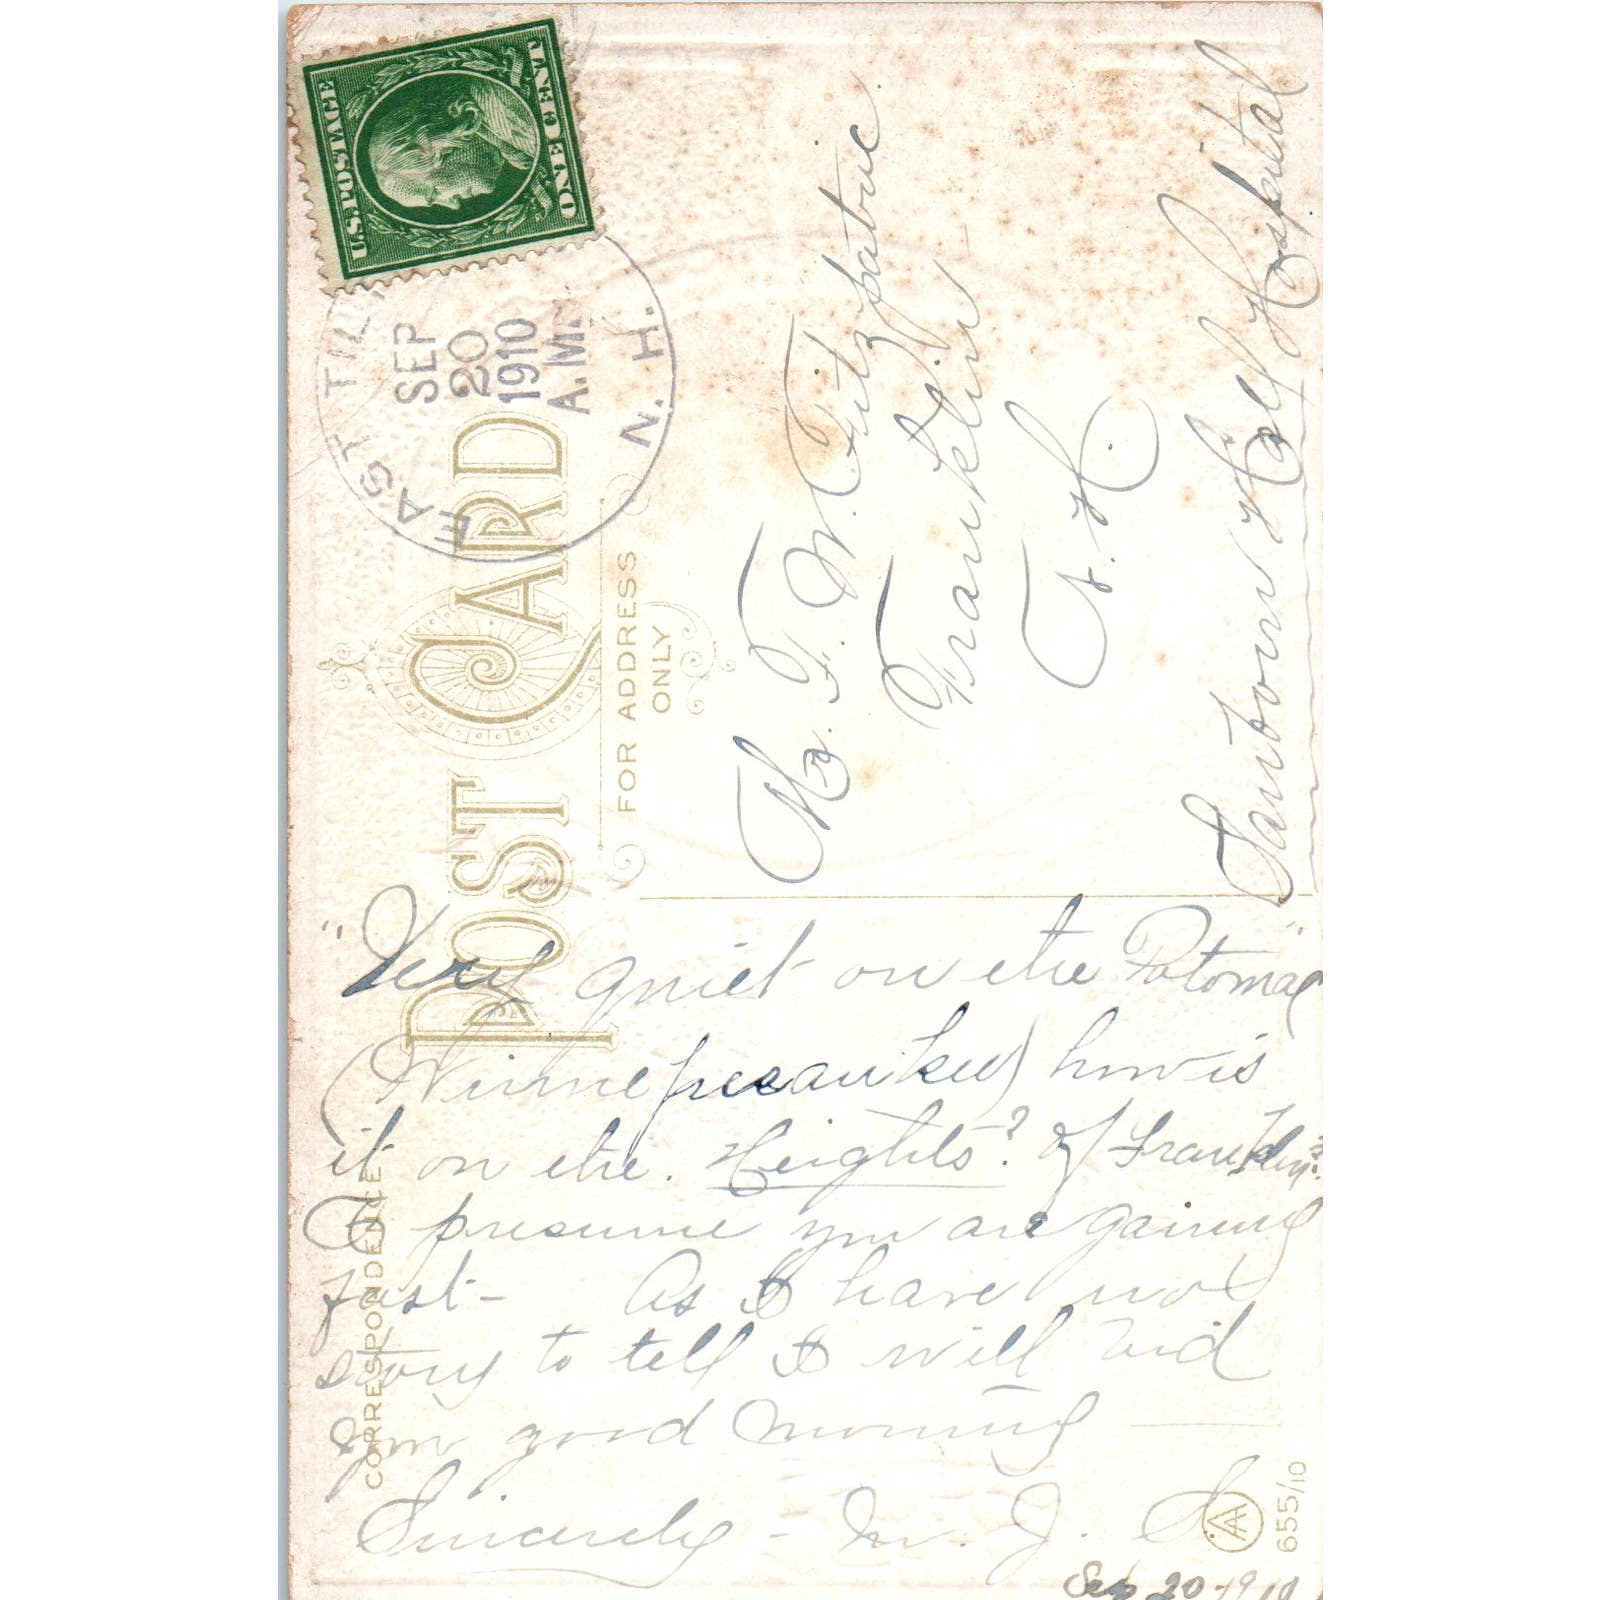 U.S. POSTAGE
ONE CENT
EAST TIL
SEP
20
1910
A.M.
N.H.
POST CARD
FOR ADDRESS
ONLY
F. W. Fitzpatric
Franklin
N. H.
Sanborn Hall Hospital
CORRESPONDENCE
"Very quiet on the Potomac"
(Winnepesaukee) how is
it on the. Heights? of Franklin?
I presume you are gaining
fast- As I have not
story to tell I will bid
you good morning —
Sincerely - M. J. S
Sep 20-1910
AA
655/10